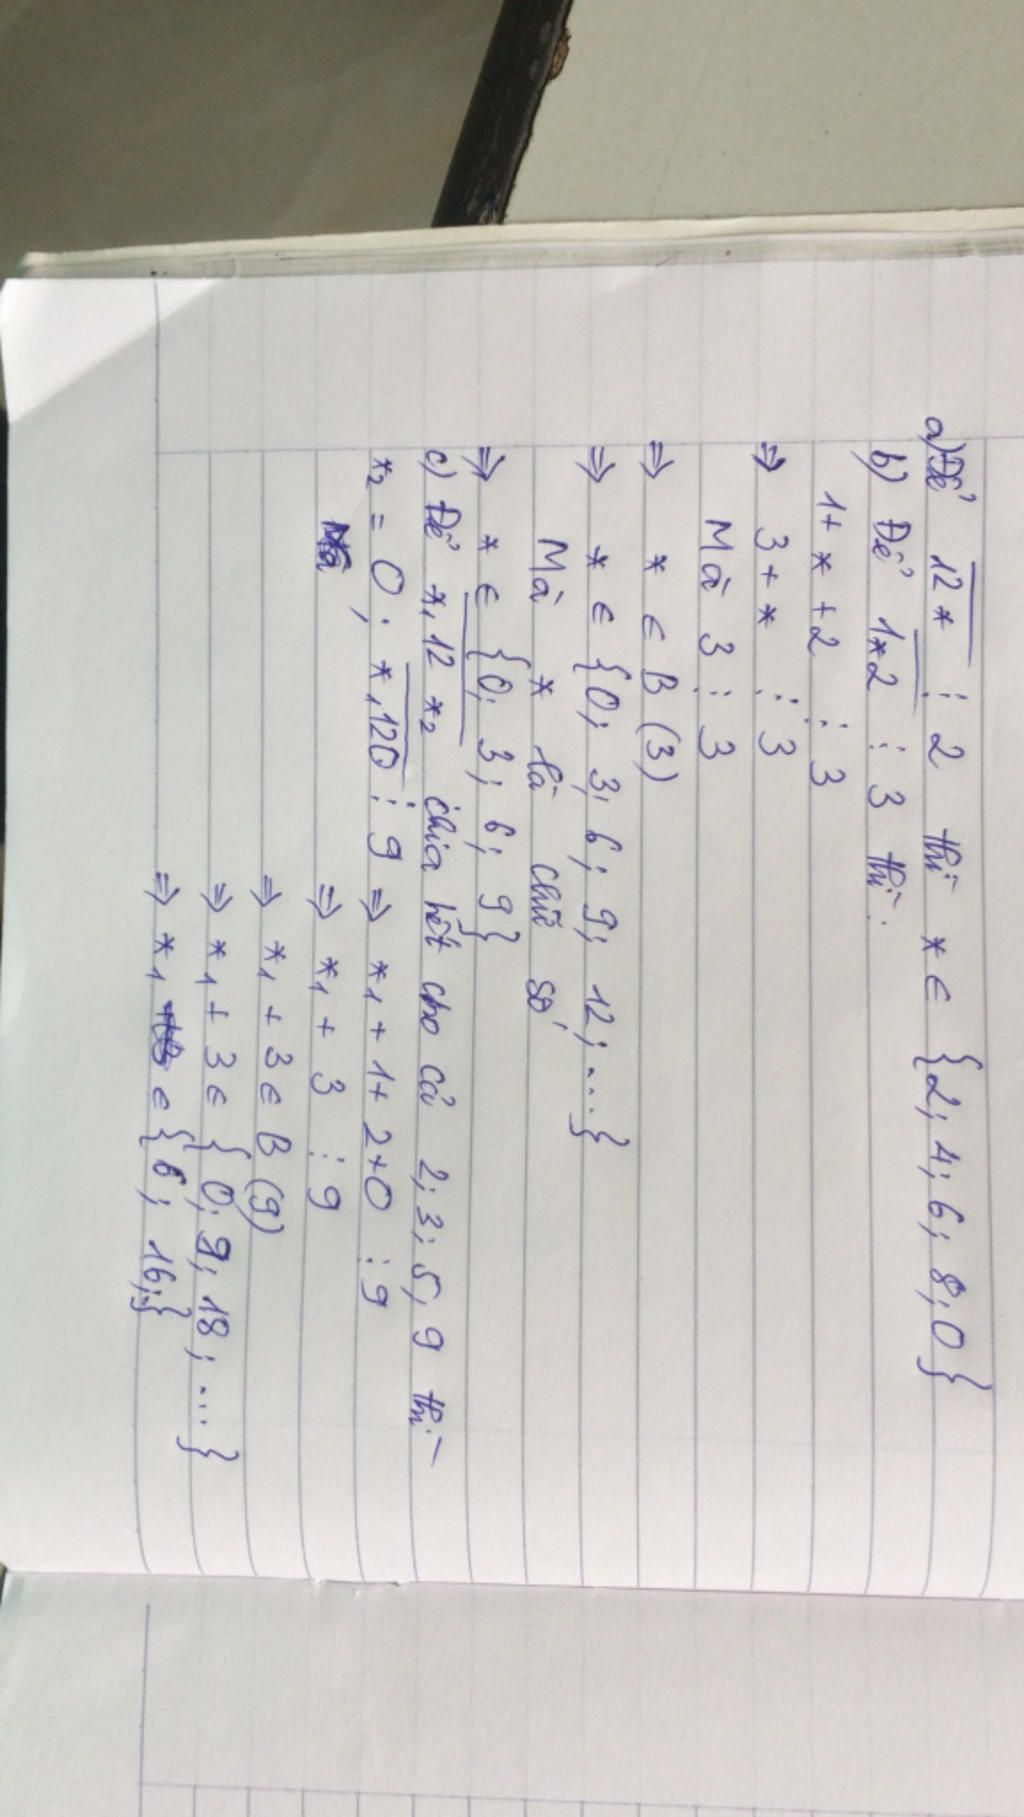 a) Để 12* ⋮ 2 thì * ∈ {2; 4; 6; 8; 0}
b) Để 1*2 ⋮ 3 thì:
1 + * + 2 ⋮ 3
⇒ 3 + * ⋮ 3
Mà 3 ⋮ 3
⇒ * ∈ B (3)
⇒ * ∈ {0; 3; 6; 9; 12; ...}
Mà * là chữ số
⇒ * ∈ {0; 3; 6; 9}
c) Để *₁12*₂ chia hết cho cả 2; 3; 5; 9 thì
*₂ = 0; *₁120 ⋮ 9 ⇒ *₁ + 1 + 2 + 0 ⋮ 9
⇒ *₁ + 3 ⋮ 9
⇒ *₁ + 3 ∈ B (9)
⇒ *₁ + 3 ∈ {0; 9; 18; ...}
⇒ *₁ ∈ {6; 16; ..}